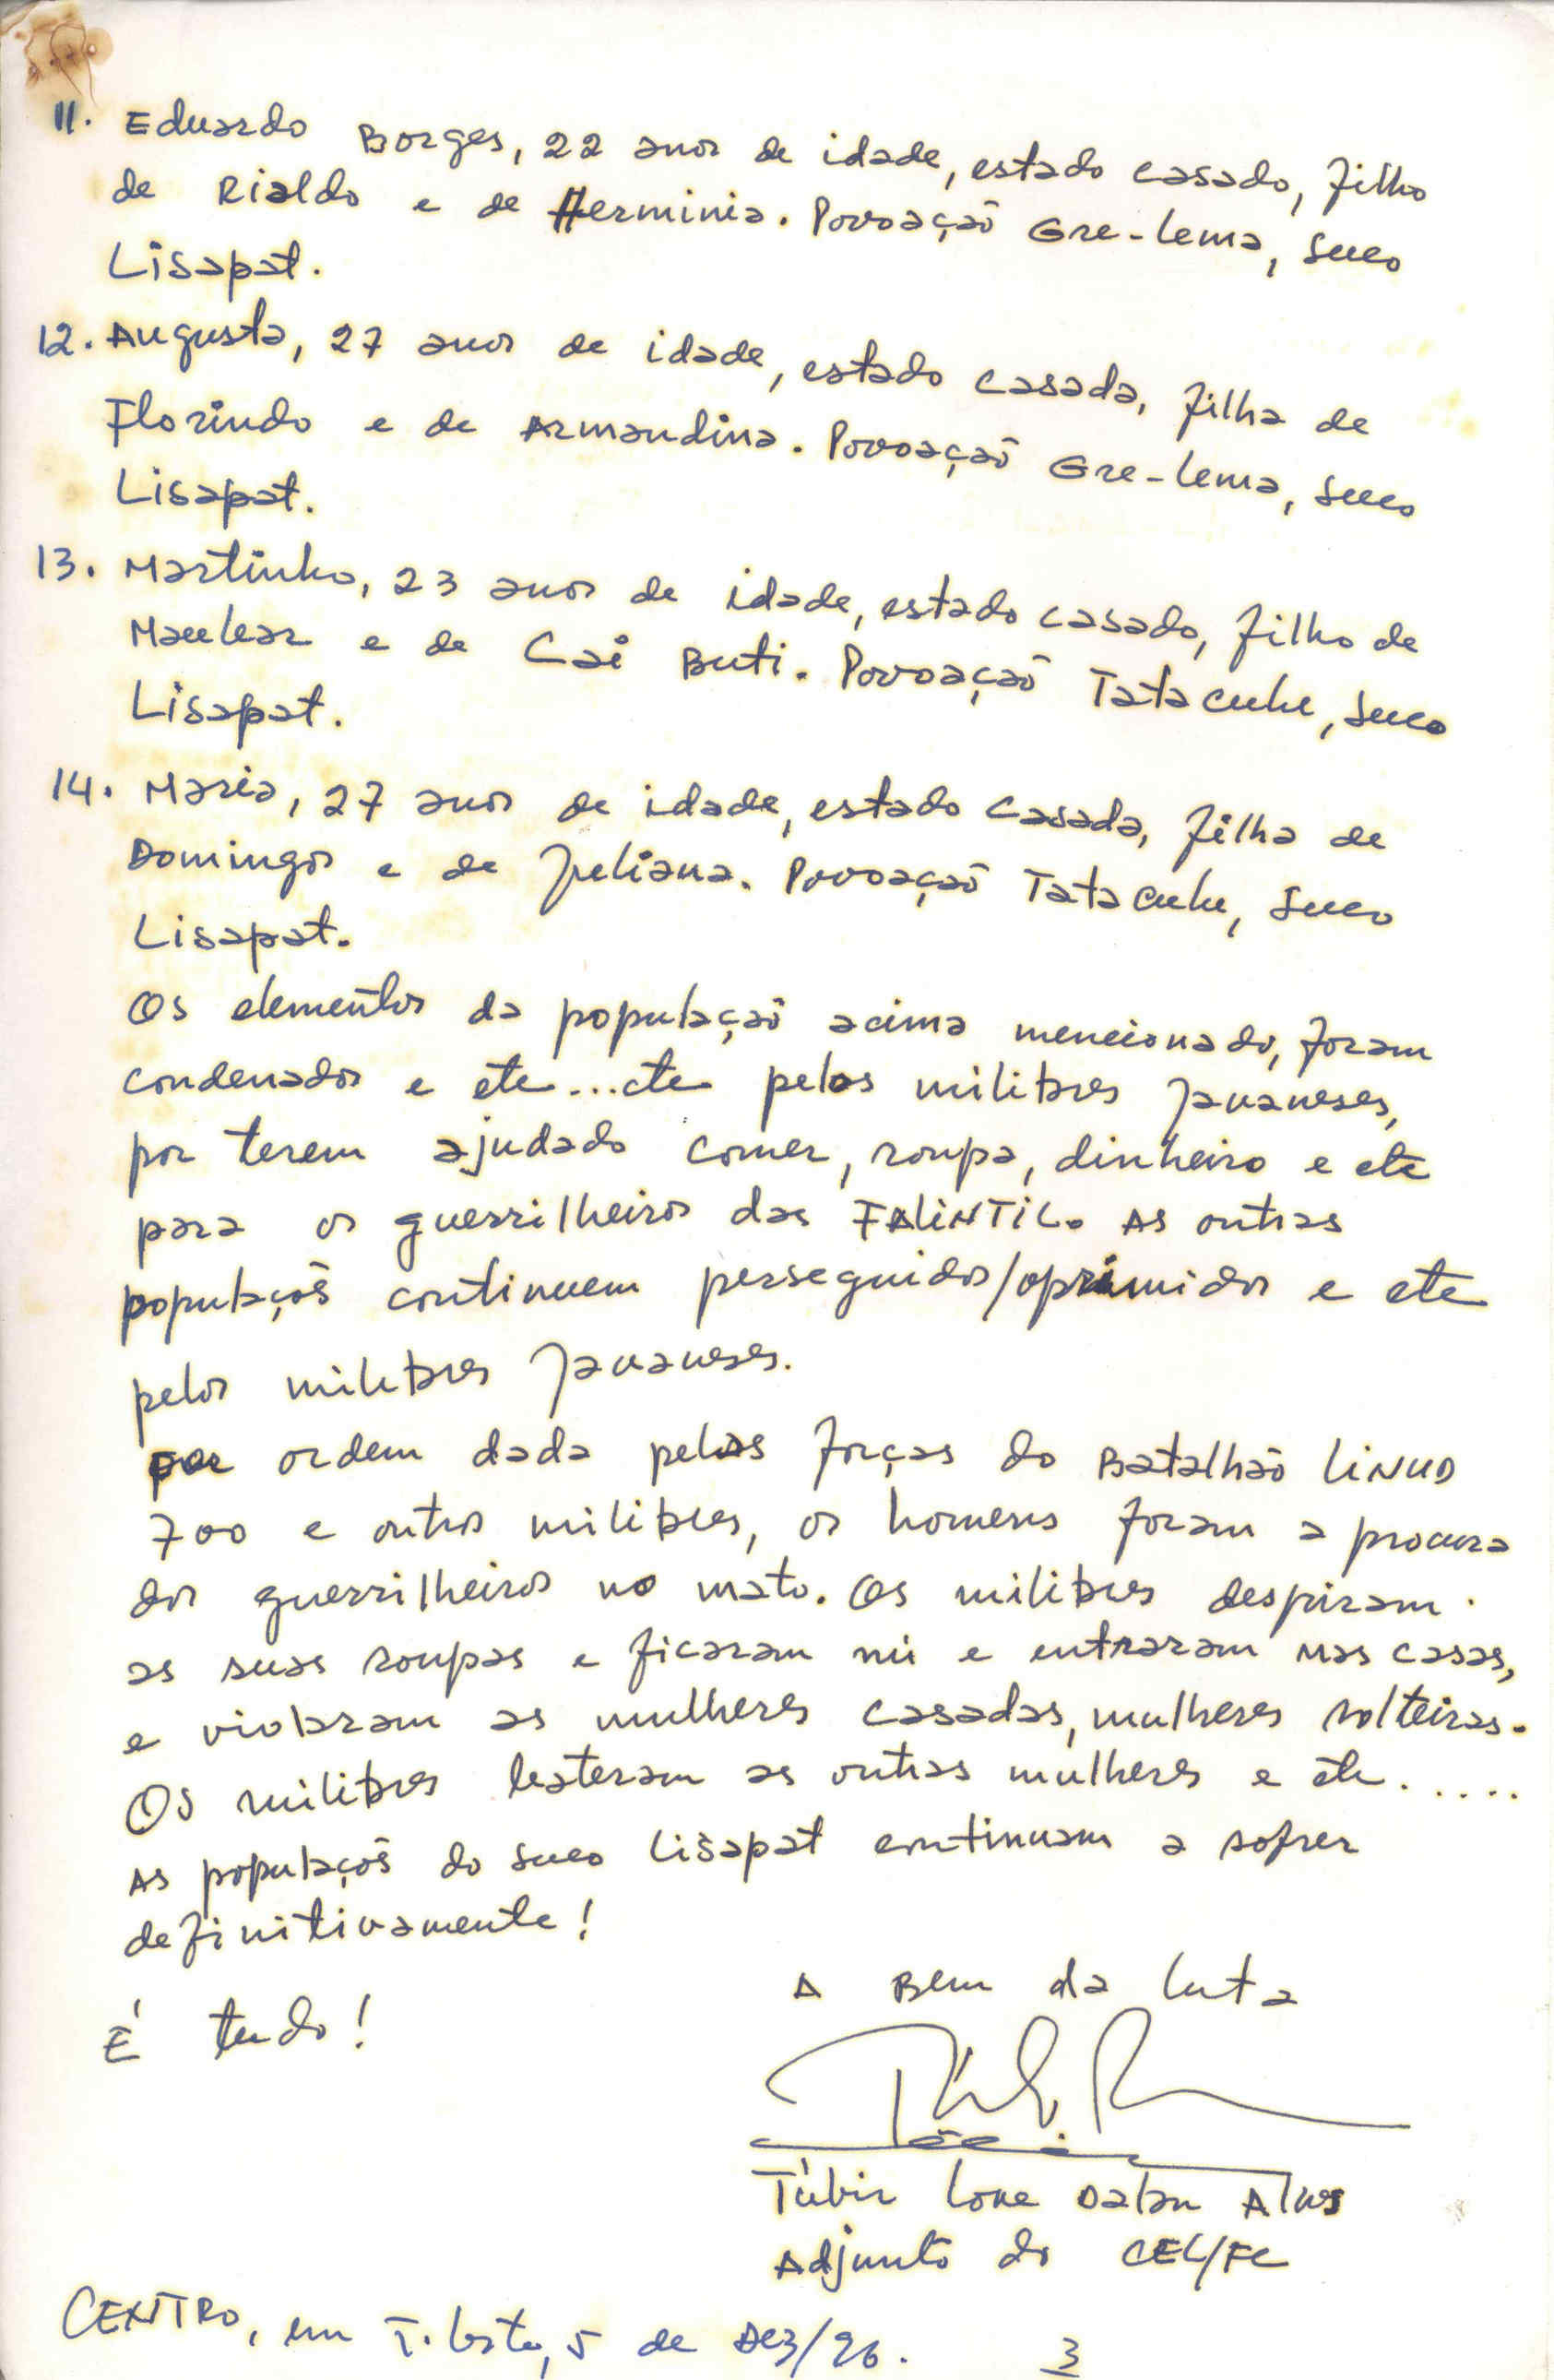 11. Eduardo Borges, 22 anos de idade, estado casado, filho
de Rialdo e de Herminia. Povoação Gre-lema, suco
Lisapat.
12. Augusta, 27 anos de idade, estado casada, filha de
Florindo e de Armandina. Povoação Gre-lema, suco
Lisapat.
13. Martinho, 23 anos de idade, estado casado, filho de
Maulear e de Cai Buti. Povoação Tata culu, suco
Lisapat.
14. Maria, 27 anos de idade, estado casada, filha de
Domingos e de Juliana. Povoação Tata culu, suco
Lisapat.
Os elementos da população acima mencionado, foram
condenados e etc...etc pelos militares Javaneses,
por terem ajudado comer, roupa, dinheiro e etc
para os guerrilheiros das FALINTIL. As outras
populaçõs continuem perseguidos/oprimidos e etc
pelos militares Javaneses.
Por ordem dada pelas forças do Batalhão LiNUD
700 e outros militares, os homens foram a procura
dos guerrilheiros no mato. Os militares despiram
as suas roupas e ficaram nú e entraram nas casas,
e violaram as mulheres casadas, mulheres solteiras.
Os militares bateram as outras mulheres e etc.....
As populaçõs do suco Lisapat continuam a sofrer
definitivamente!
A Bem da luta
É tudo!
Adjunto do CEL/FC
CENTRO, em T. Leste, 5 de Dez/96.
3